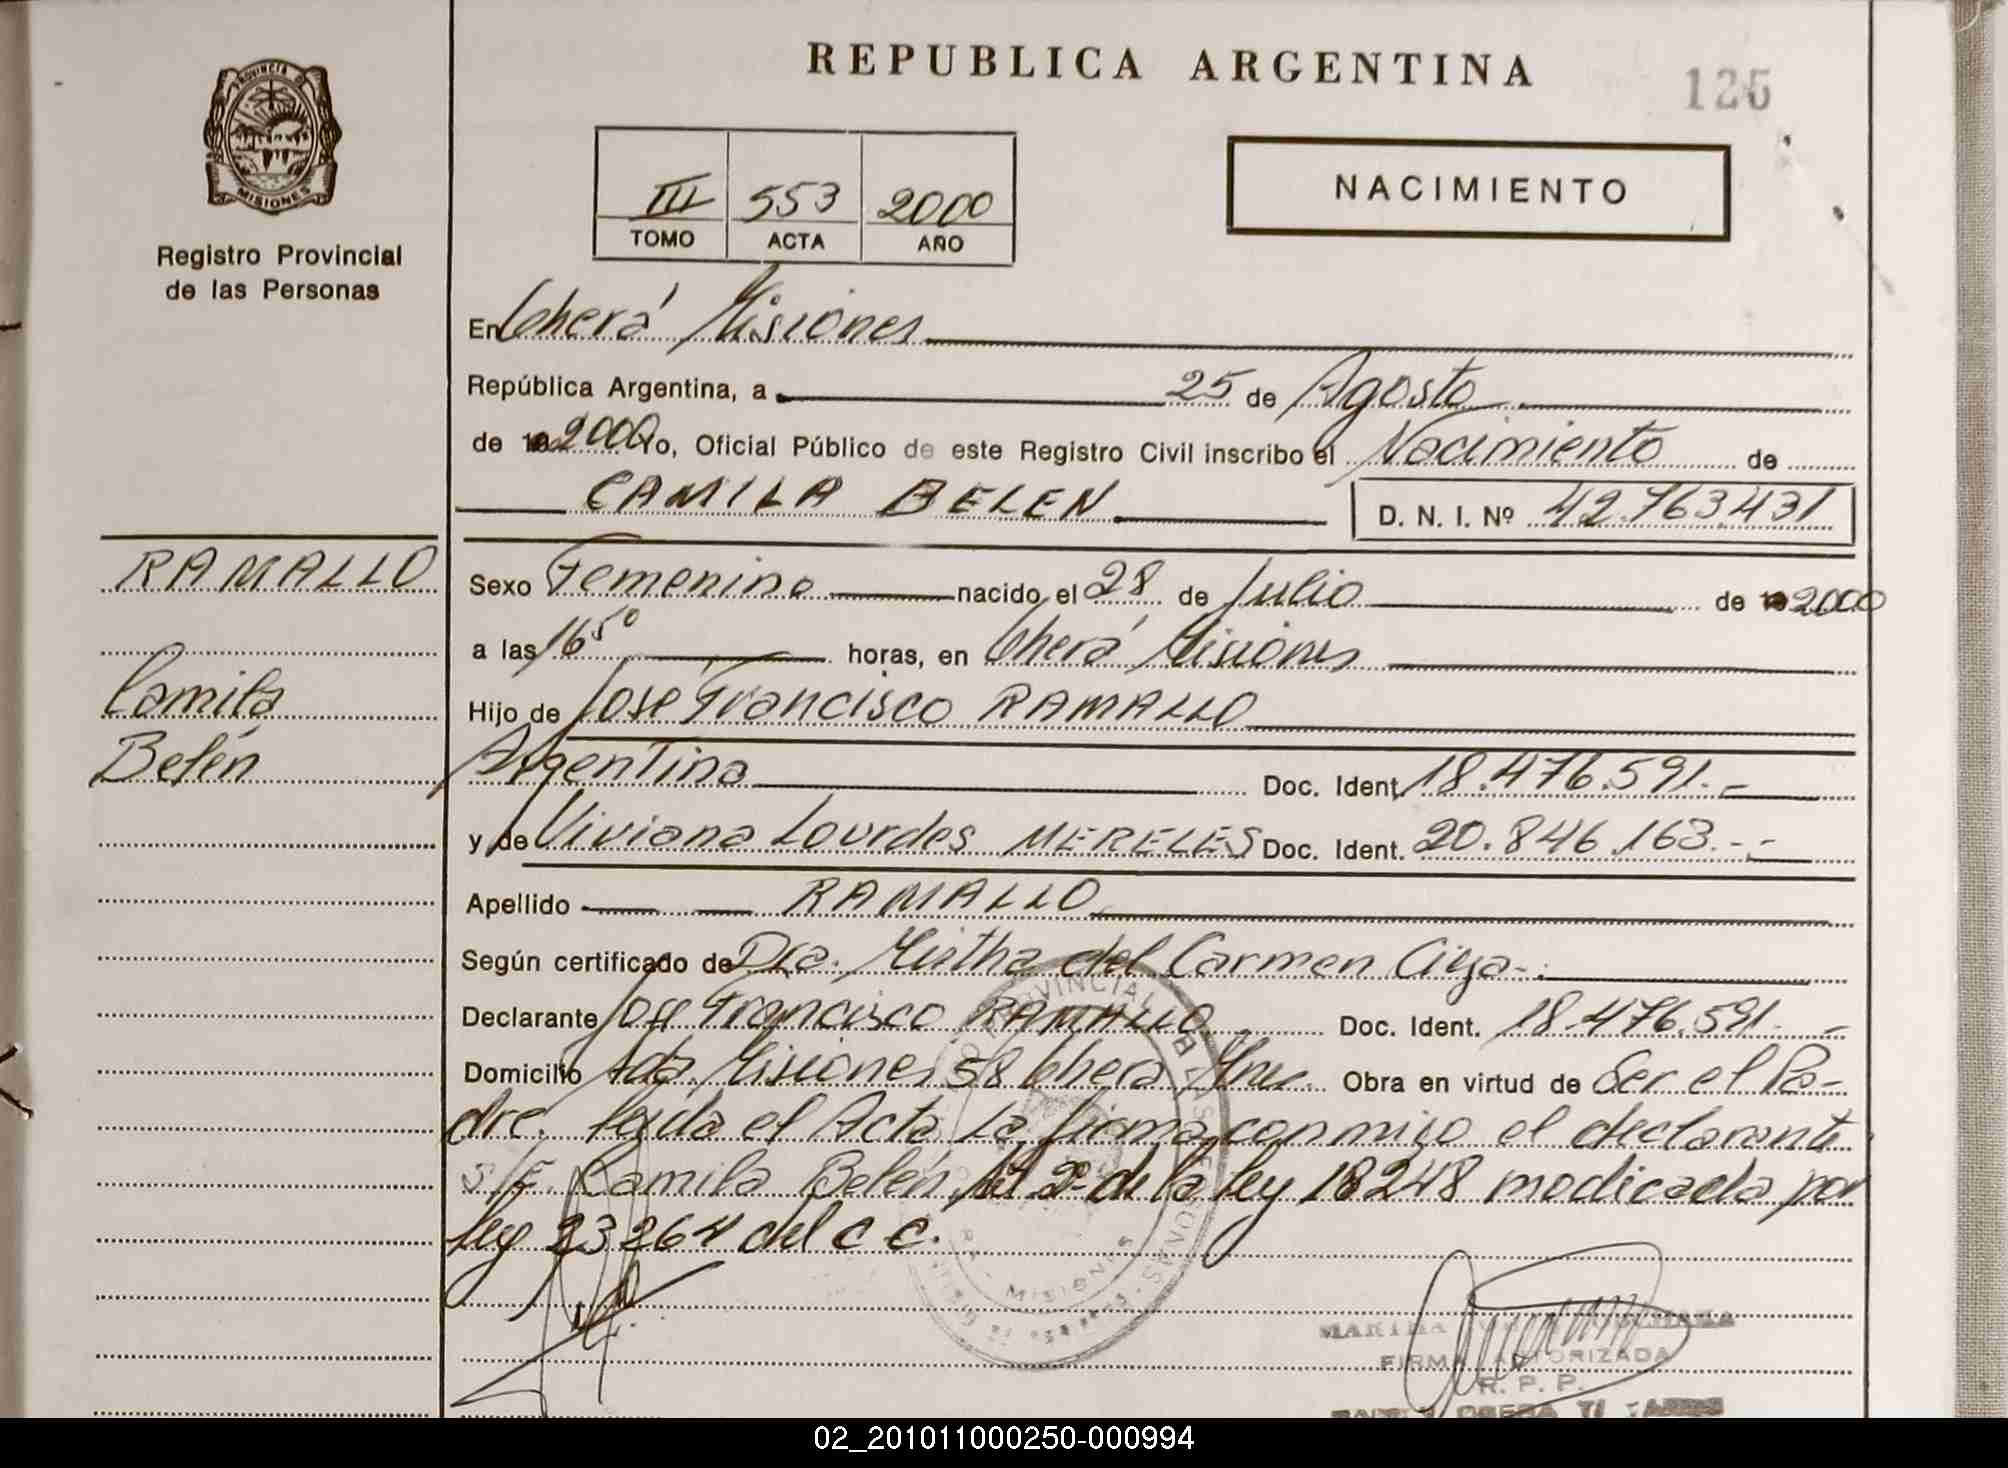 REPUBLICA ARGENTINA
126
PROVINCIA D
MISIONES
Registro Provincial
de las Personas
III 553 2000
TOMO ACTA AÑO
NACIMIENTO
En Oberá Misiones
República Argentina, a 25 de Agosto
de 2000 Yo, Oficial Público de este Registro Civil inscribo el Nacimiento de
CAMILA BELEN D. N. I. Nº 42.763.431
RAMALLO
Camila
Belén
Sexo Femenino nacido el 28 de Julio de 2000
a las 16 50 horas, en Oberá Misiones
Hijo de José Francisco RAMALLO
Argentina Doc. Ident. 18.476.591.-
y de Viviana Lourdes MERELES Doc. Ident. 20.846.163.-.-
Apellido RAMALLO
Según certificado de Dra. Mirtha del Carmen
Declarante José Francisco RAMALLO Doc. Ident. 18.476.591.-
Domicilio Avda. Misiones 58 Oberá Mnes. Obra en virtud de Ser el Pa-
dre. Leída el Acta La firma conmigo el declarante
S/E. Camila Belén, de la ley 18248 modicada por
ley 23264 del C C.
MISIONES
FIRMA AUTORIZADA
R. P. P.
02_201011000250-000994